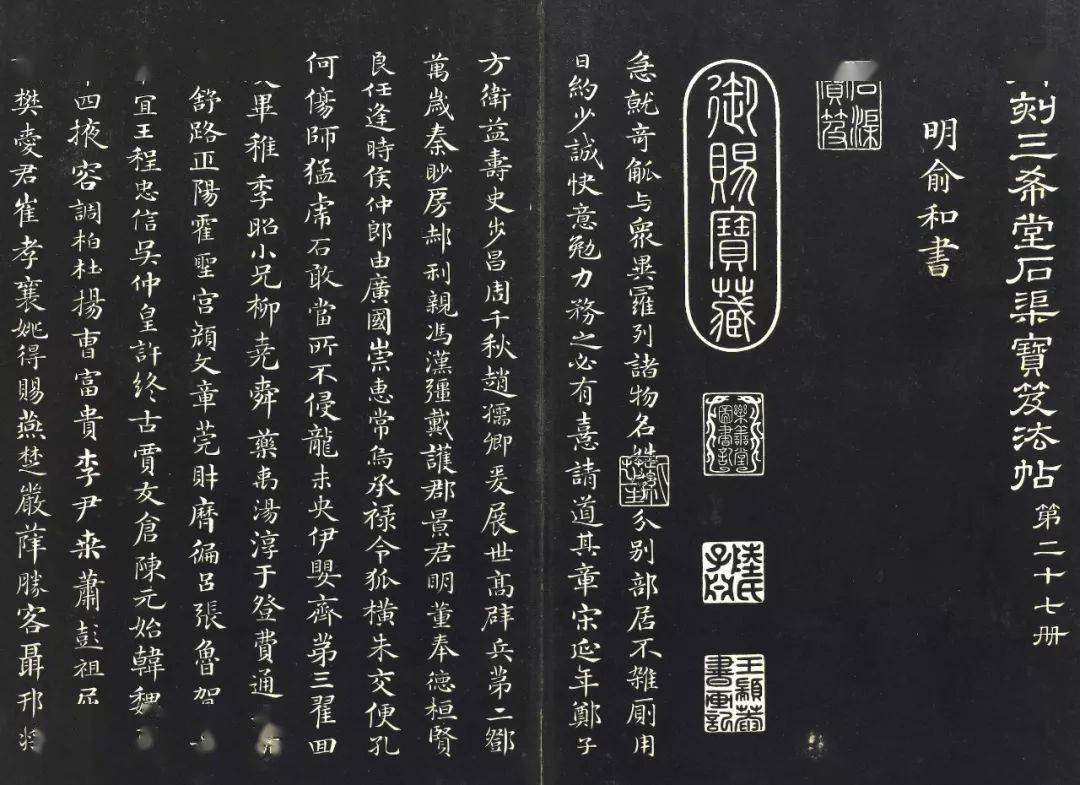 刻三希堂石渠寶笈法帖 第二十七册
明俞和書
石渠寶笈
御賜寶藏
樂善堂圖書記
急就奇觚与衆異羅列諸物名姓分別部居不雜厠用
日約少誠快意勉力務之必有憙請道其章宋延年鄭子
方衛益壽史步昌周千秋趙孺卿爰展世高辟兵第二鄧
萬歲秦眇房郝利親馮漢彊戴護郡景君明董奉德桓賢
良任逢時侯仲郎由廣國崇惠常烏承禄令狐橫朱交便孔
何傷師猛虎石敢當所不侵龍未央伊嬰齊第三翟回
畢稚季昭小兄柳堯舜藥禹湯淳于登費通
舒路正陽霍聖宫顔文章莞財曆徧呂張魯賀
宜王程忠信吳仲皇許終古賈友倉陳元始韓魏
四掖容調柏杜揚曹富貴李尹桒蕭彭祖屈
樊愛君崔孝襄姚得賜燕楚嚴薛勝客聶邗將